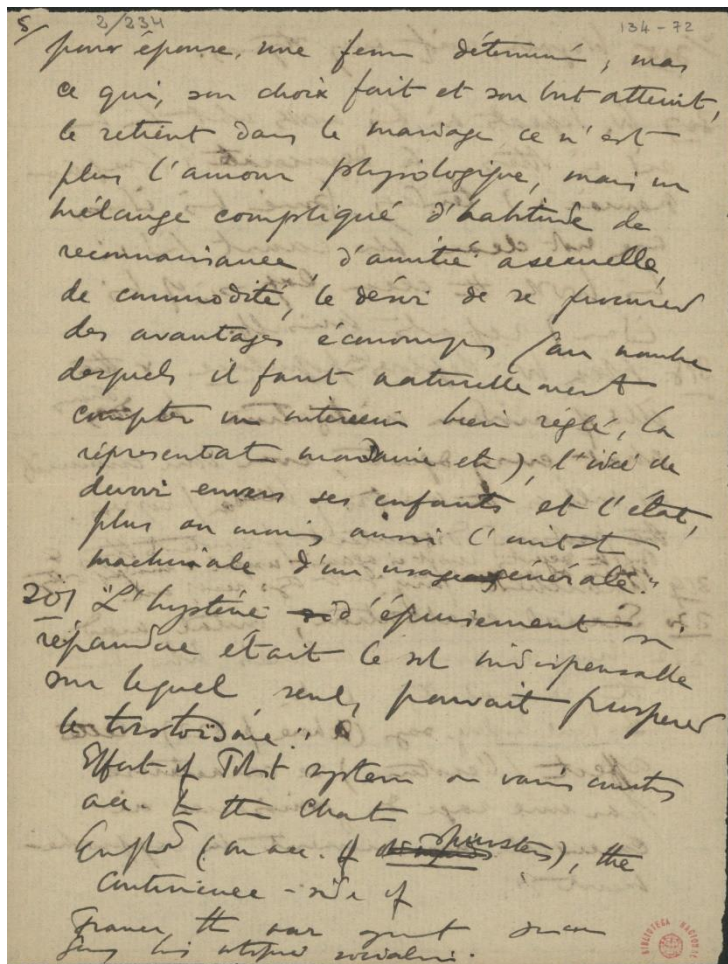 5/ 2/234 134-72
pour épouse, une femme déterminé, mais
ce qui, son choix fait et son but atteint,
le retient dans le mariage ce n'est
plus l'amour physiologique, mais un
mélange compliqué d'habitude de
reconnaissance, d'amitié asexuelle,
de commodité, le désir de se procurer
des avantages économiques (au nombre
desquels il faut naturellement
compter un intérieur bien réglé, la
représentat mondaine etc), l'idée de
devoir envers ses enfants et l'état,
plus ou moins aussi l'imitat
machinale d'un usage générale."
201 "L'hystérie d'épuisement si
répandue était le sol indispensable
sur lequel, seul, pouvait prosperer
le tolstoïsme."
Effect of Tolst system on various countries
acc. to the chart
England (on acc. of spinsters), the
continence-side of
France, the war
his utopic socialism.
BIBLIOTECA NACIONAL